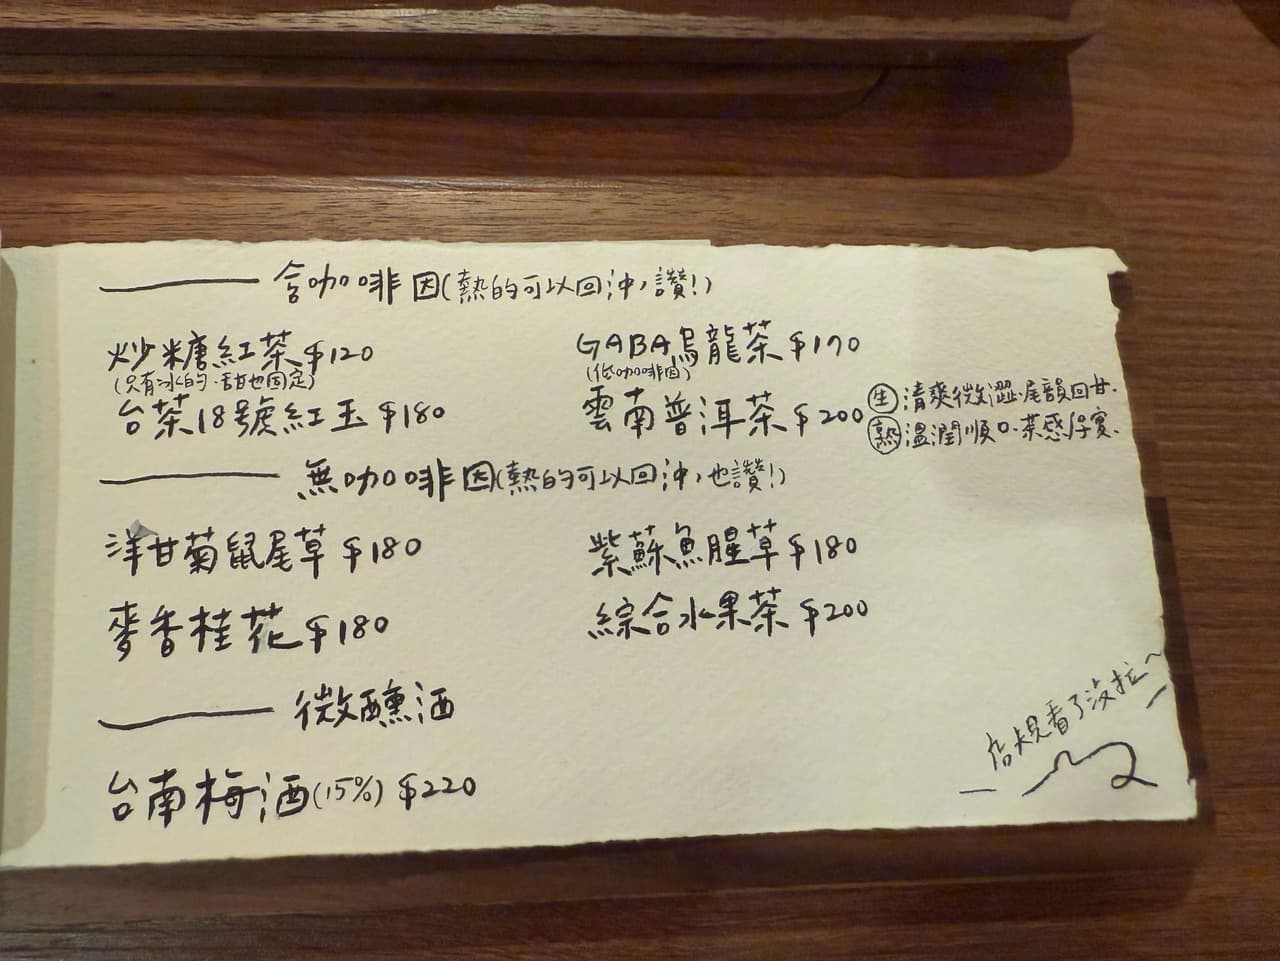 含咖啡因(熱的可以回沖,讚!)
炒糖紅茶 $120
(只有冰的.甜也固定)
GABA烏龍茶 $170
(低咖啡因)
台茶18號紅玉 $180
雲南普洱茶 $200
生 清爽微澀.尾韻回甘.
熟 溫潤順口.茶感厚實.
無咖啡因(熱的可以回沖,也讚!)
洋甘菊鼠尾草 $180
紫蘇魚腥草 $180
麥香桂花 $180
綜合水果茶 $200
微醺酒
台南梅酒(15%) $220
店規看了沒拉~